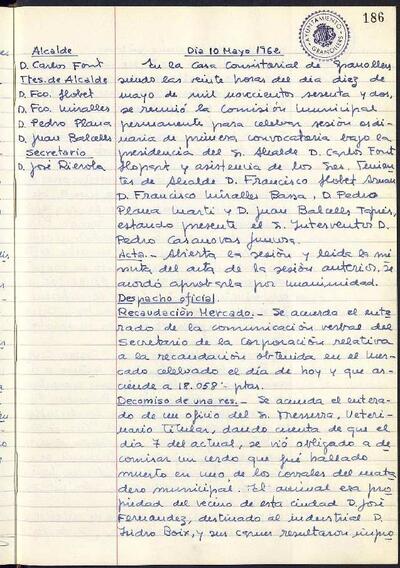 186
AYUNTAMIENTO
GRANOLLERS
Alcalde
D. Carlos Font
Ttes. de Alcalde
D. Fco. Llobet
D. Fco. Miralles
D. Pedro Plana
D. Juan Balcells
Secretario
D. José Rierola
Día 10 Mayo 1962
En la Casa Consistorial de Granollers,
siendo las veinte horas del día diez de
mayo de mil novecientos sesenta y dos,
se reunió la Comisión Municipal
permanente para celebrar sesión ordi-
naria de primera convocatoria bajo la
presidencia del Sr. Alcalde D. Carlos Font
Llopart y asistencia de los Sres. Tenien-
tes de Alcalde D. Francisco Llobet Arnan
D. Francisco Miralles Bassa, D. Pedro
Plana Martí y D. Juan Balcells Tapies,
estando presente el Sr. Interventor D.
Pedro Casanovas
Acta.- Abierta la sesión y leida la mi-
nuta del acta de la sesión anterior, se
acordó aprobarla por unanimidad.
Despacho oficial.
Recaudación Mercado.- Se acuerda el ente-
rado de la comunicación verbal del
Secretario de la Corporación relativa
a la recaudación obtenida en el Mer-
cado celebrado el día de hoy y que as-
ciende a 18.058'- ptas.
Decomiso de una res.- Se acuerda el entera-
do de un oficio del Sr. Veter-
inario Titular, dando cuenta de que el
día 7 del actual, se vió obligado a de-
comisar un cerdo que fué hallado
muerto en uno de los corrales del mata-
dero municipal. El animal era pro-
piedad del vecino de esta ciudad D. José
Fernandez, destinado al industrial D.
Isidro Boix, y sus carnes resultaron impro-